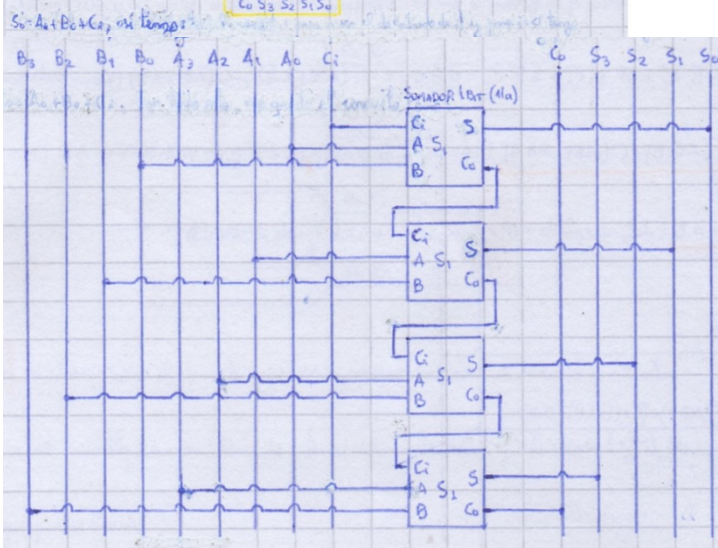 C₀ S₃ S₂ S₁ S₀
S₀ = A₀ + B₀ + Ci,
B₃ B₂ B₁ B₀ A₃ A₂ A₁ A₀ Ci C₀ S₃ S₂ S₁ S₀
SOMADOR 1 BIT
Ci S
A S₁
B C₀
Ci S
A S₁
B C₀
Ci S
A S₁
B C₀
Ci S
A S₁
B C₀